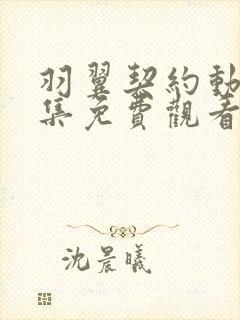 羽翼契約動
集免費觀看
沈晨曦